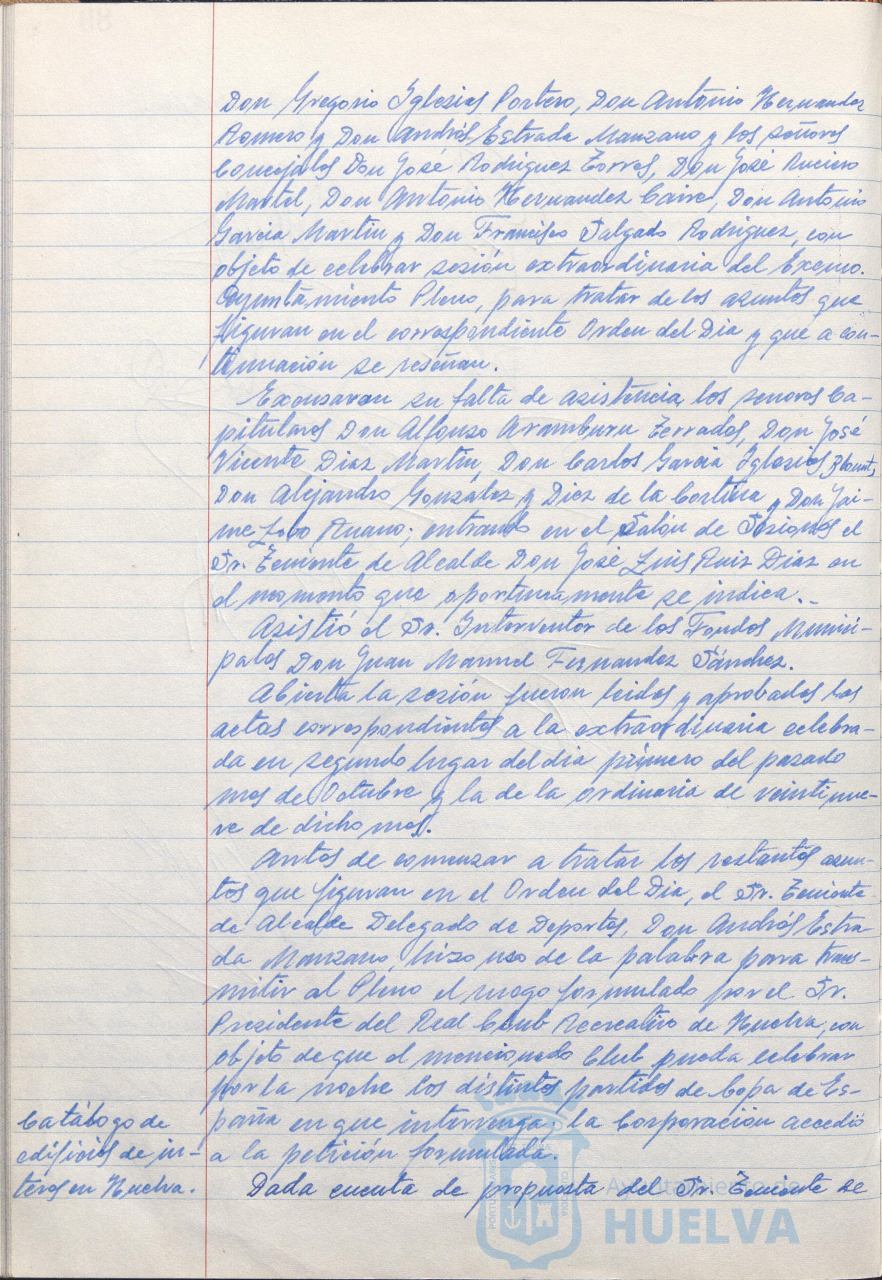 Don Gregorio Iglesias Portero, Don Antonio Hernandez
Romero y Don Andrés Estrada Manzano y los señores
Concejales Don José Rodriguez Torres, Don José Ruciero
Martel, Don Antonio Hernandez Caire, Don Antonio
Garcia Martin y Don Francisco Salgado Rodriguez, con
objeto de celebrar sesión extraordinaria del Excmo.
Ayuntamiento Pleno, para tratar de los asuntos que
figuran en el correspondiente Orden del Dia y que a con-
tinuación se reseñan.
Excusaron su falta de asistencia, los senores Ca-
pitulares Don Alfonso Aramburu Terrades, Don José
Vicente Diaz Martin, Don Carlos Garcia Iglesias,
Don Alejandro Gonzalez y Diez de la Cortina y Don Jai-
me Lobo Ruano; entrando en el Salón de Sesiones el
Sr. Teniente de Alcalde Don José Luis Ruiz Diaz en
el momento que oportunamente se indica.-
Asistió el Sr. Interventor de los Fondos Munici-
pales Don Juan Manuel Fernandez Sánchez.
Abierta la sesión fueron leidas y aprobadas las
actas correspondientes a la extraordinaria celebra-
da en segundo lugar del dia primero del pasado
mes de Octubre y la de la ordinaria de veintinue-
ve de dicho mes.
Antes de comenzar a tratar los restantes asun-
tos que figuran en el Orden del Dia, el Sr. Teniente
de Alcalde Delegado de Deportes, Don Andrés Estra-
da Manzano, hizo uso de la palabra para trans-
mitir al Pleno el ruego formulado por el Sr.
Presidente del Real Club Recreativo de Huelva, con
objeto de que el mencionado Club pueda celebrar
por la noche los distintos partidos de Copa de Es-
paña en que intervenga; la Corporación accedió
a la petición formulada.
Catálogo de
edificios de in-
teres en Huelva.
Dada cuenta de propuesta del Sr. Teniente de
Ayuntamiento de
HUELVA